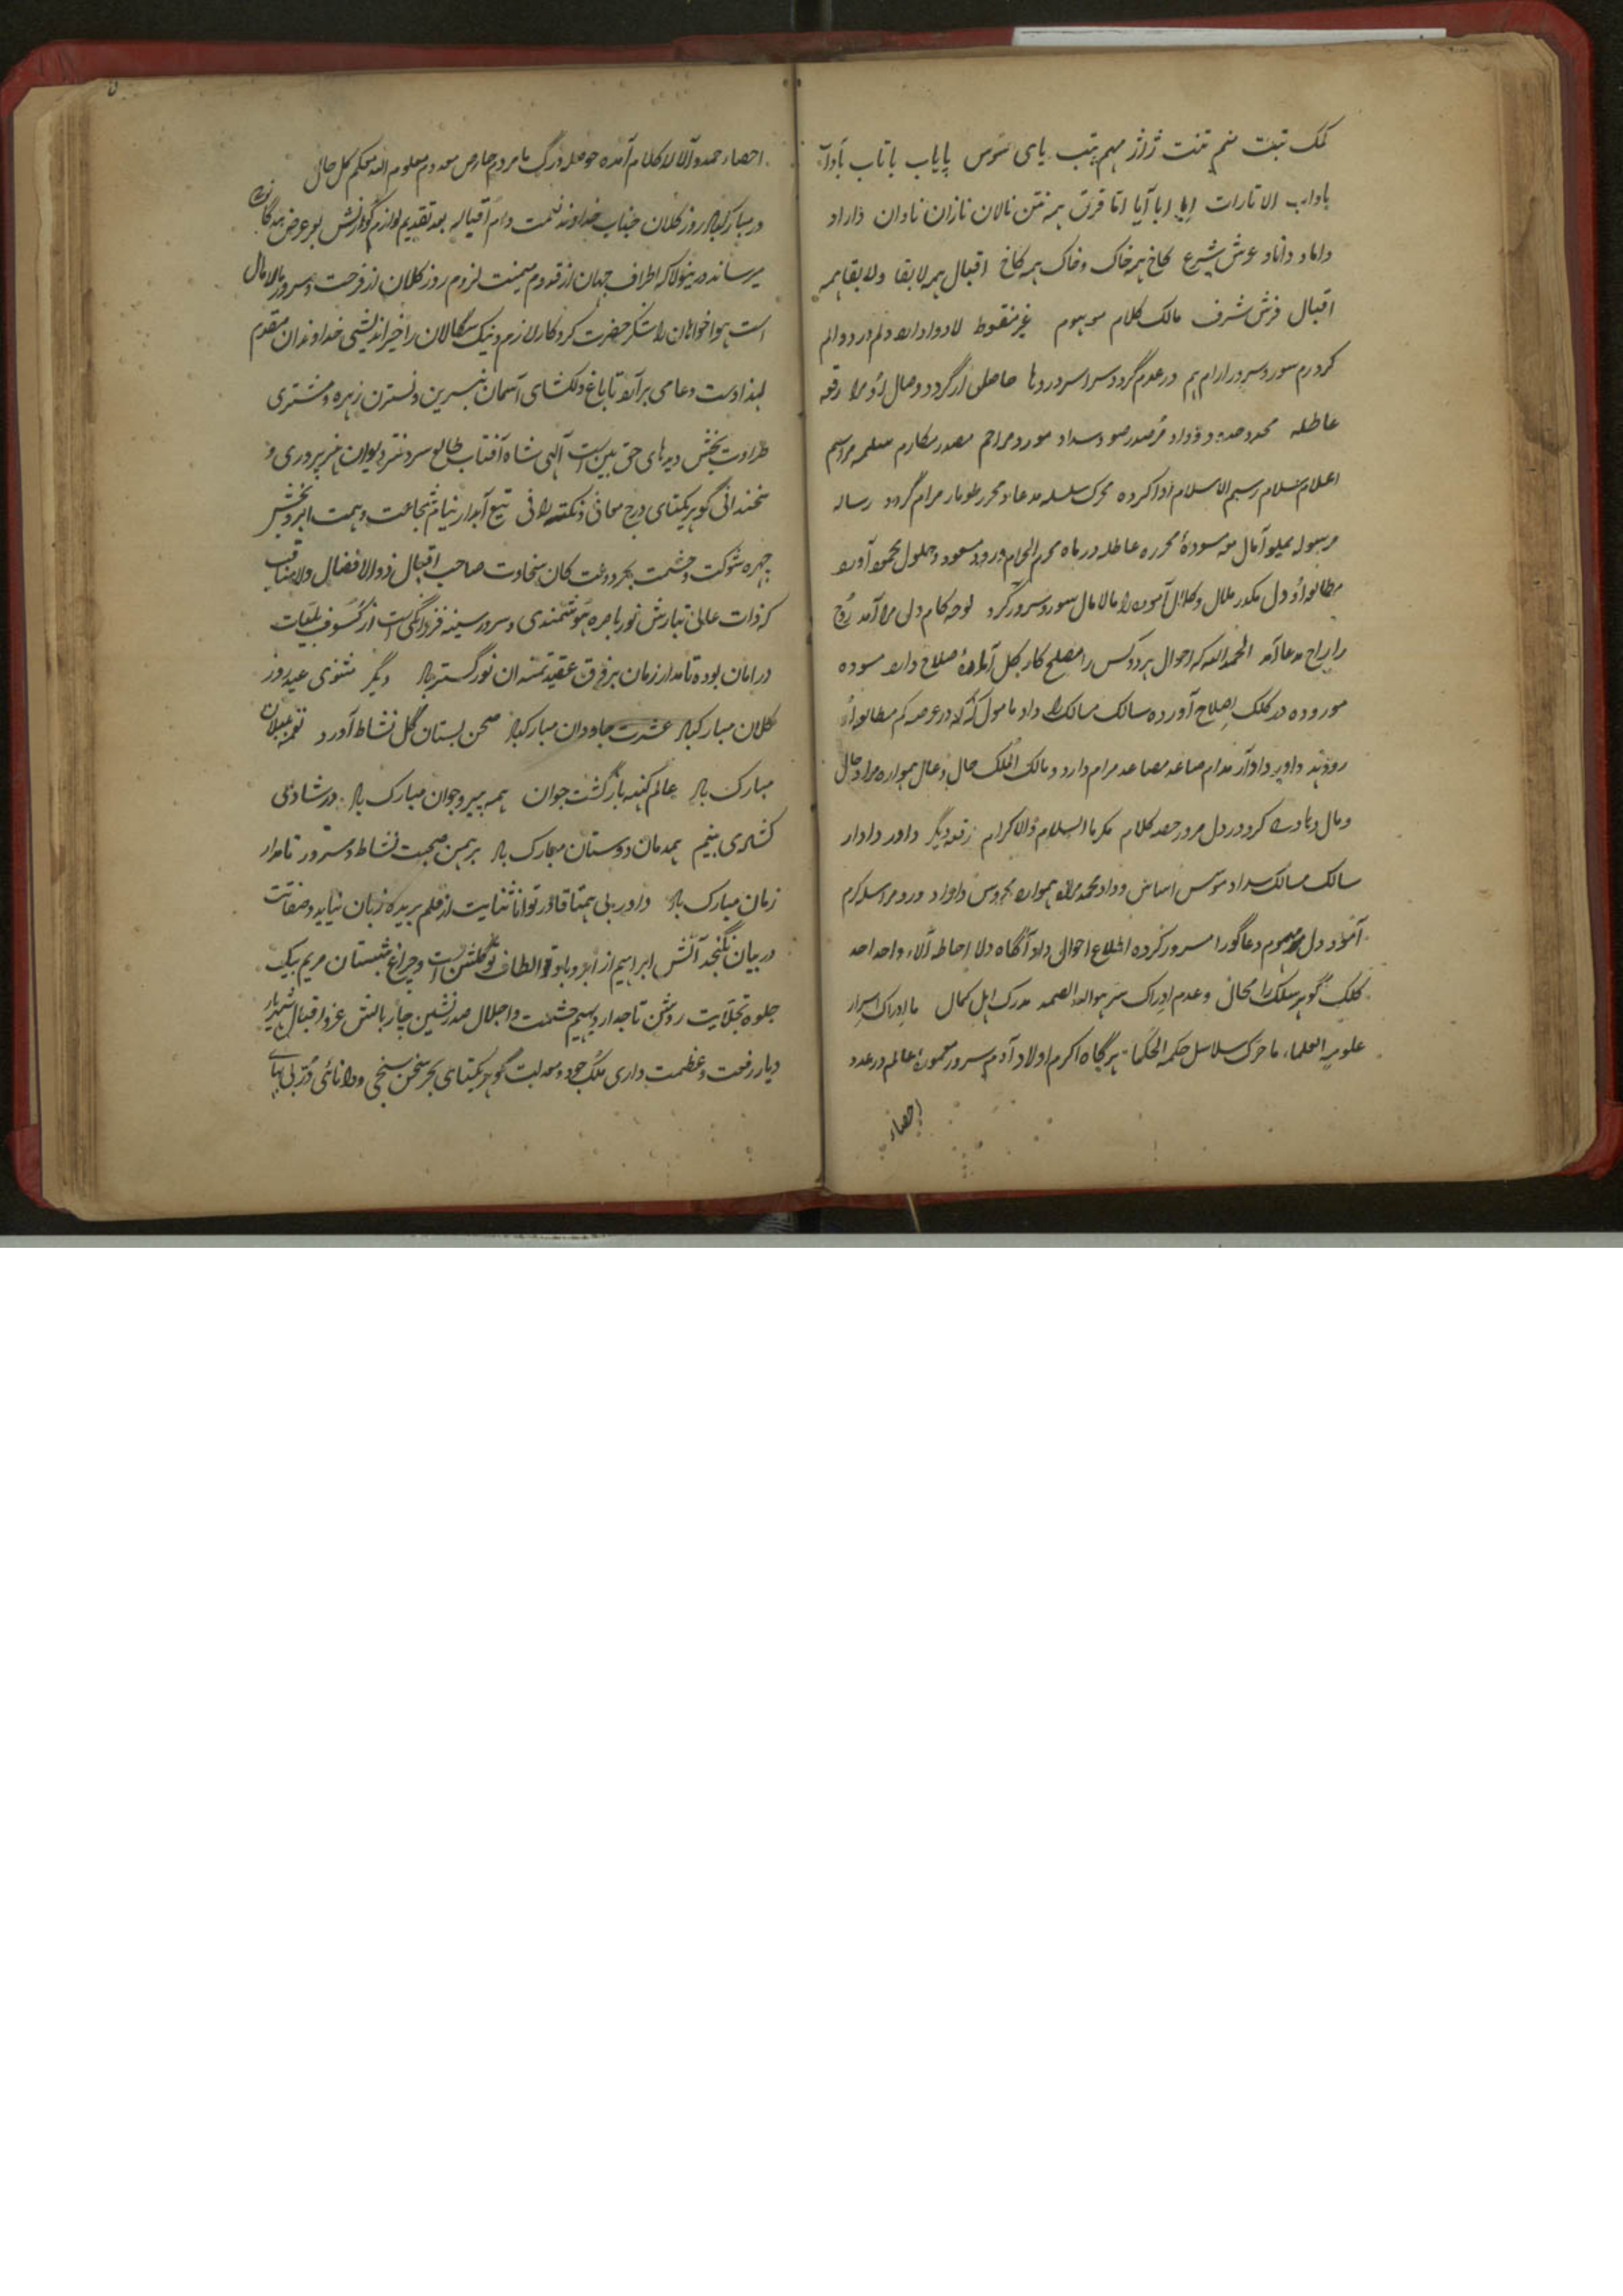 کمک تبت منم تنت ژاژ مهم تب یای سوس پایاب باتاب باداب
باداب الا تارات ابا آیا اتا قرق همه تن نالان نازان نادان داراد
داماد داناد عرش شرع کاخ همه خاک وخاک همه کاخ اقبال همه لابقا ولابقا همه
اقبال فرش شرف مالک کلام موهوم غیر منقوط لادوا دارد دلم در دوالم
کردرم سور وسرور ارام هم در عدم گردد سراسر دردها حاصلی ار گردد وصال او مرا رقعه
عاطله محدد وداد مصدر وسداد مورد مراحم مصدر مکارم سلمه مراسم
اعلام سلام رسم الاسلام ادا کرده محرک سلسله مدعا ومحرر طومار مرام گردد رساله
مرسوله مملو آمال مع مسودهٔ محرره عاطله در ماه محرم الحرام ورود مسعود وحلول محمود آورد
مطالعه او دل مکدر ملال وکلال آمود را مالامال سور وسرور کرد لوحه کام دل مرا آمد روح
را راح مدعا آمد الحمد لله که احوال هر دو کس را مصلح کار کل آماده صلاح دارد مسوده
موروده در کلک اصلاح آورده سالک مسالک داد مامول که در عرصه کم مطالعه او
رو دهد داور دادآر مدام صاعد مصاعد مرام دارد ومالک الملک حال وعال همواره مراد حال
ومال کرد در دل مرور حصه کلام مکرما السلام والاکرام رقعه دیگر داور دادار
سالک مسالک سداد موسس اساس وداد محمد مراد همواره محروس داراد ورود مراسله کرم
آمود دل مهموم دعاگو را مسرور کرده اطلاع احوال داد آگاه دلا احاطه آلاء واحد احد
کلک گوهر سلک را محال وعدم ادراک سر هو الله الصمد مدرک اهل کمال ما ادراک اسرار
علومه العلماء ما حرک سلاسل حکمه الحکماء هرگاه اکرم اولاد آدم سرور معمورهٔ عالم در عدد
احصاء
احصاء حمد وآلا لال کلام آمده حوصله درک ما مردم معدوم معلوم الله محکم کل حال
در مبارکباد روز کلان جناب خداوند نعمت دام اقباله بعد تقدیم لوازم کورنش بعرض بندگان
میرساند درینولا که اطراف جهان از قدوم میمنت لزوم روز کلان از فرحت وسرور مالامال
است هواخواهان را شکر حضرت کردگار لازم ونیک سگالان را خیر اندیشی خداوندان مقدم
لهذا دست دعا می برآرد تا باغ دلکشای آسمان بنسرین ونسترن زهره ومشتری
طراوت بخش دیدهای حق بین است الهی شاه آفتاب طالع سر دفتر دیوان هنر پروری و
سخندانی گوهر یکتای درج معانی ونکته رانی تیغ آبدار نیام شجاعت وهمت ابر وبخش
چهره شوکت وحشمت بحر دوعت کان سخاوت صاحب اقبال ذوالافضال والامناقب
که ذات عالی تبارش نور باصره هوشمندی وسرور سینه فرزانگی است از کسوف بلیات
در امان بوده تا مدار زمان بر فرق عقیدتمندان نور گستر باد دیگر مثنوی عید روز
کلان مبارکباد عشرت جاودان مبارکباد صحن بستان گل نشاط آورد نغمه بلبلان
مبارک باد عالم کهنه باز گشت جوان همه پیر وجوان مبارک باد در شادی
کشادی بینم همدمان دوستان مبارک باد بر همین صحبت نشاط وسرور تا مدار
زمان مبارک باد داور بی همتا قادر توانا ثنایت از قلم بریده زبان نیاید وصفاتت
در بیان نگنجد آتش ابراهیم از الطاف تو گلشن است وچراغ شبستان مریم بیک
جلوه تجلایت روشن تاجدار دیهیم حشمت واجلال صدر نشین چار بالش عز واقبال شهریار
دیار رفعت وعظمت داری ملک جود ومعدلت گوهر یکتای بحر سخن سنجی ودانائی در بی بهای